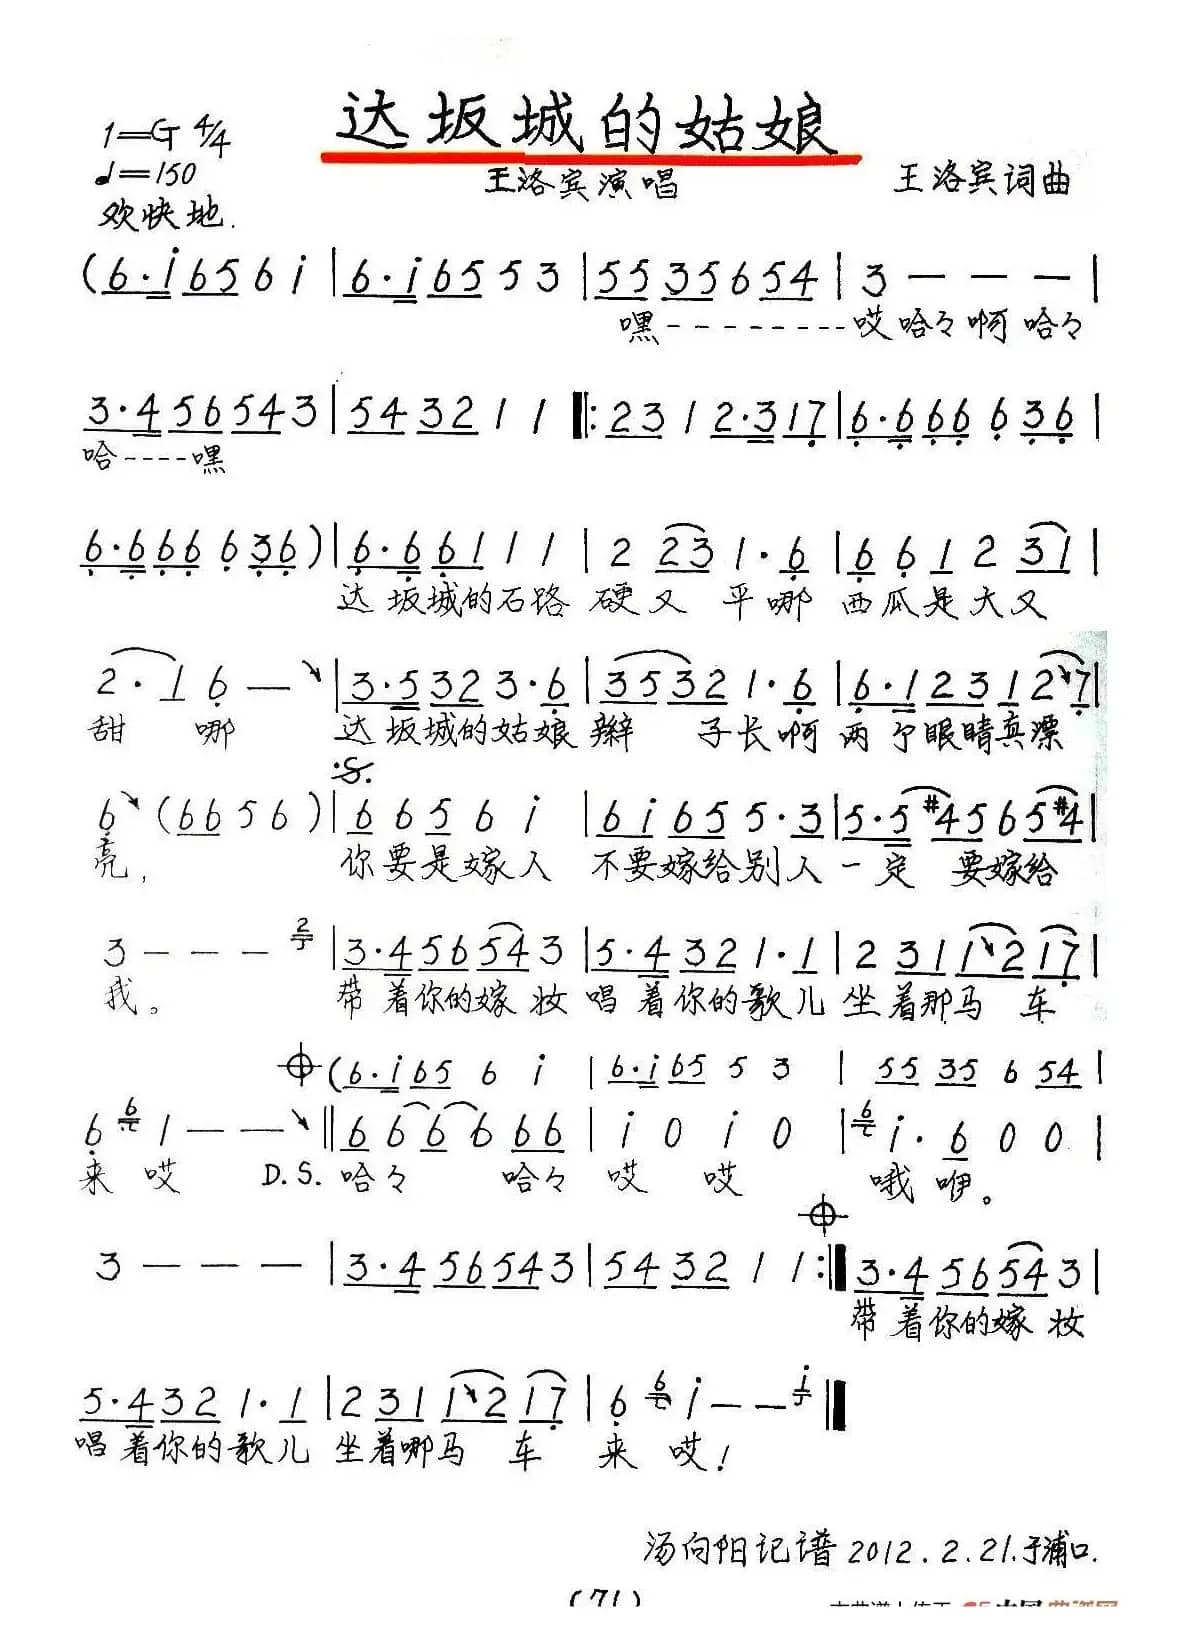 达坂城的姑娘
1=G 4/4
♩=150
欢快地.
王洛宾演唱
王洛宾词曲
(6·i 6 5 6 i | 6·i 6 5 5 3 | 5 5 3 5 6 5 4 | 3 — — — |
嘿--------哎哈々啊哈々
3·4 5 6 5 4 3 | 5 4 3 2 1 1 ‖: 2 3 1 2·3 1 7 | 6·6 6 6 6 3 6 |
哈----嘿
6·6 6 6 6 3 6 ) | 6·6 6 1 1 1 | 2 2 3 1·6 | 6 6 1 2 3 1 |
达坂城的石路硬又平哪西瓜是大又
2·1 6 — | 3·5 3 2 3·6 | 3 5 3 2 1·6 | 6·1 2 3 1 2 7 |
甜哪达坂城的姑娘辫子长啊两个眼睛真漂
6 (6 6 5 6 ) | 6 6 5 6 i | 6 i 6 5 5·3 | 5·5 #4 5 6 5 #4 |
亮,你要是嫁人不要嫁给别人一定要嫁给
3 — — — 2 | 3·4 5 6 5 4 3 | 5·4 3 2 1·1 | 2 3 1 1 2 1 7 |
我。带着你的嫁妆唱着你的歌儿坐着那马车
(6·i 6 5 6 i | 6·i 6 5 5 3 | 5 5 3 5 6 5 4 |
6 6 1 — — ‖ 6 6 6 6 6 6 | i 0 i 0 | 6 i·6 0 0 |
来哎 D.S. 哈々哈々哎哎哦咿。
3 — — — | 3·4 5 6 5 4 3 | 5 4 3 2 1 1 :‖ 3·4 5 6 5 4 3 |
带着你的嫁妆
5·4 3 2 1·1 | 2 3 1 1 2 1 7 | 6 6 i — — i ‖
唱着你的歌儿坐着哪马车来哎!
汤向阳记谱2012.2.21.于浦口.
(71)